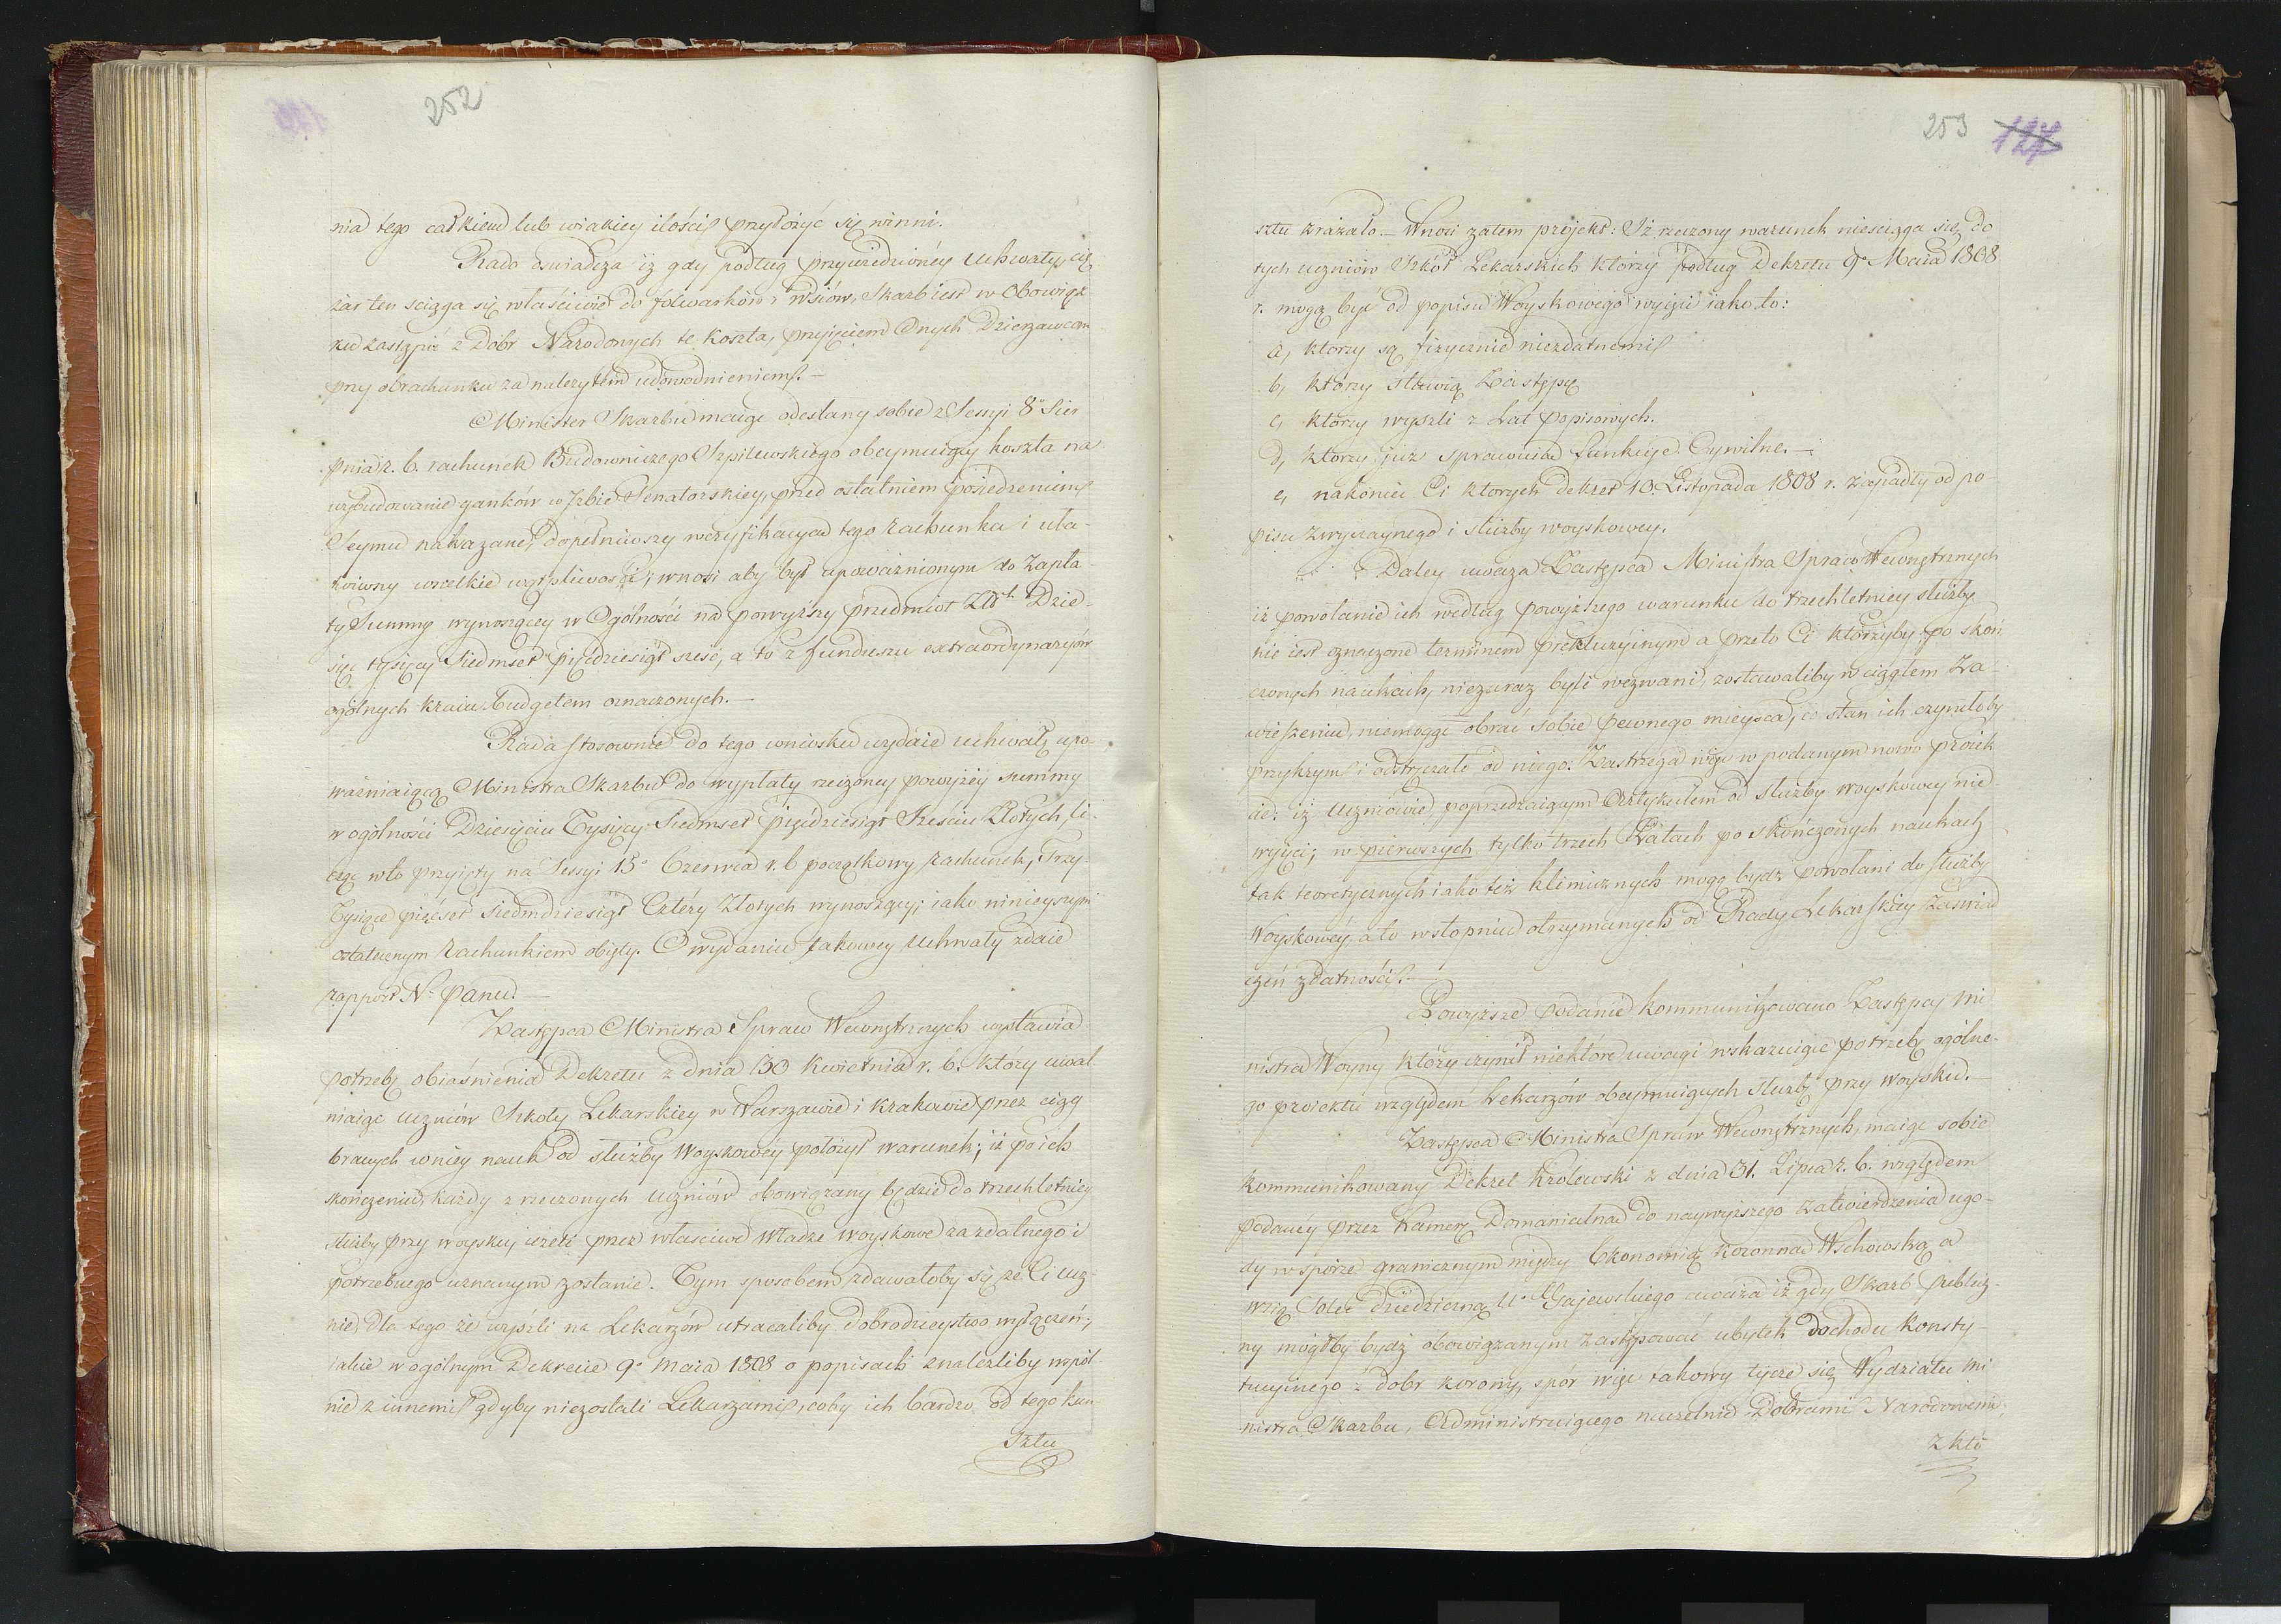 252
nia tego całkiem lub wiakiey ilości przyłożyć się winni.
Rada oświadcza iż gdy podług przywiedzionéy Uchwały, cię
żar ten sciąga się właściwie do folwarków i wsiów, Skarb iest w Obowiąz
ku zastąpić z Dóbr Narodowych te koszta, przyięciem Onych Dzierzawcom
przy obrachunku za należytém udowodnieniem.—
Minister Skarbu maiąc odesłany sobie z Sessyi 8° Sier
pnia r. b. rachunek Budowniczego Szpilewskiego obeymuiący koszta na
wybudowanie ganków w Izbie Senatorskiey, przed ostatniem posiedzeniem
Seymu nakazane, dopełniwszy weryfikacyą tego rachunku i uła-
twiwszy wszelkie wątpliwości; wnosi aby był upoważnionym do zapła-
ty Summy wynoszącey w Ogólności na powyższy przedmiot Złtch Dzie-
sięc tysięcy Siedmset pięćdziesiąt sześć, a to z funduszu extraordynaryów
ogólnych kraiu budgetem oznaczonych.—
Rada stosownie do tego wniosku wydaie uchwałę upo-
ważniaiącą Ministra Skarbu do wypłaty rzeczoney powyżéy summy
w ogólności Dziesięciu Tysięcy Siedmset pięćdziesiąt Sześciu Złotych, li-
cząc w to przyięty na Sessyi 15° Czerwca r. b początkowy rachunek, Trzy-
Tysiące pięćset Siedmdziesiąt Cztéry Złotych wynoszący; iako ninieyszym
ostatecznym rachunkiem obięty. O wydaniu takowey Uchwały zdaie
rapport N. Panu.—
Zastępca Ministra Spraw Wewnętrznych wystawia
potrzebę obiaśnienia Dekretu z dnia 30 Kwietnia r. b. który uwal-
niaiąc uczniów Szkoły Lekarskiey w Warszawie i Krakowie przez ciąg
branych w niey nauk od służby Woyskowéy położył warunek; iż po ich
skończeniu, każdy z rzeczonych uczniów obowiązany będzie do trzechletniéy
służby przy woysku, ieżeli przez właściwe Władze woyskowe za zdatnego i
potrzebnego uznanym zostanie. Tym sposobem zdawałoby się że Ci ucz-
nie, dla tego że wyszli na Lekarzów utracaliby dobrodzieystwo wyłączeń,
iakie w ogólnym Dekrecie 9° Maia 1808 o popisach znaleźliby wspól-
nie z innemi gdyby niezostali Lekarzami, coby ich bardzo od tego kun-
sztu
253 127
sztu zrażało.— Wnosi zatem projekt: Iż rzeczony warunek niesciąga się do
tych uczniów Szkół Lekarskich którzy podług Dekretu 9° Maia 1808
r. mogą być od popisu Woyskowégo wyięci iako to:
a, którzy są fizycznie niezdatnemi
b, którzy stawią Zastępcę
c, którzy wyszli z Lat popisowych.
d, którzy już sprawuią Funkcye Cywilne.—
e, nakoniec Ci których dekret 10. Listopada 1808 r. zapadły od po-
pisu zwyczaynego i służby woyskowey.
Daley uważa Zastępca Ministra Spraw Wewnętrznych
iż powołanie ich według powyższego warunku do trzechletniey służby
nie iest oznaczone terminem prekluzyinym a przeto Ci którzyby po skoń-
czonych naukach, niezaraz byli wezwani, zostawaliby w ciągłem Za-
wieszeniu, niemogąc obrać sobie pewnego mieysca, co stan ich czyniłoby
przykrym i odstręczało od niego. Zastrzega więc w podanym nowo proiek-
cie: iż Uczniowie poprzedzaiącym Artykułem od służby woyskowéy nie
wyięci; w pierwszych tylko trzech Latach po skończonych naukach
tak teoretycznych iako też klinicznych mogą bydz powołani do służby
Woyskowéy, a to w stopniu otrzymanych od Rady Lekarskiey zaświad-
czeń zdatności.—
Powyższe podanie kommunikowano Zastępcy Mi
nistra Woyny który czynił niektóre uwagi wskazuiące potrzebę ogólne-
go proiektu względem Lekarzów obeymuiących służbę przy woysku.—
Zastępca Ministra Spraw Wewnętrznych, maiąc sobie
kommunikowany Dekret Królewski z dnia 31. Lipca r. b. względem
podaney przez Kamerę Domanialną do naywyższego zatwierdzenia ugo-
dy w sporze granicznym między Ekonomią koronną Wschowską a
wsią Solec dziedziczną Ur Gajewskiego uważa iż gdy Skarb publicz-
ny mógłby bydz obowiązanym zastępować ubytek dochodu Konsty-
tucyinego z dóbr korony, spór więc takowy tycze się Wydziału Mi
nistra Skarbu, Administruiącego naczelnie Dobrami Narodowemi,
z któ